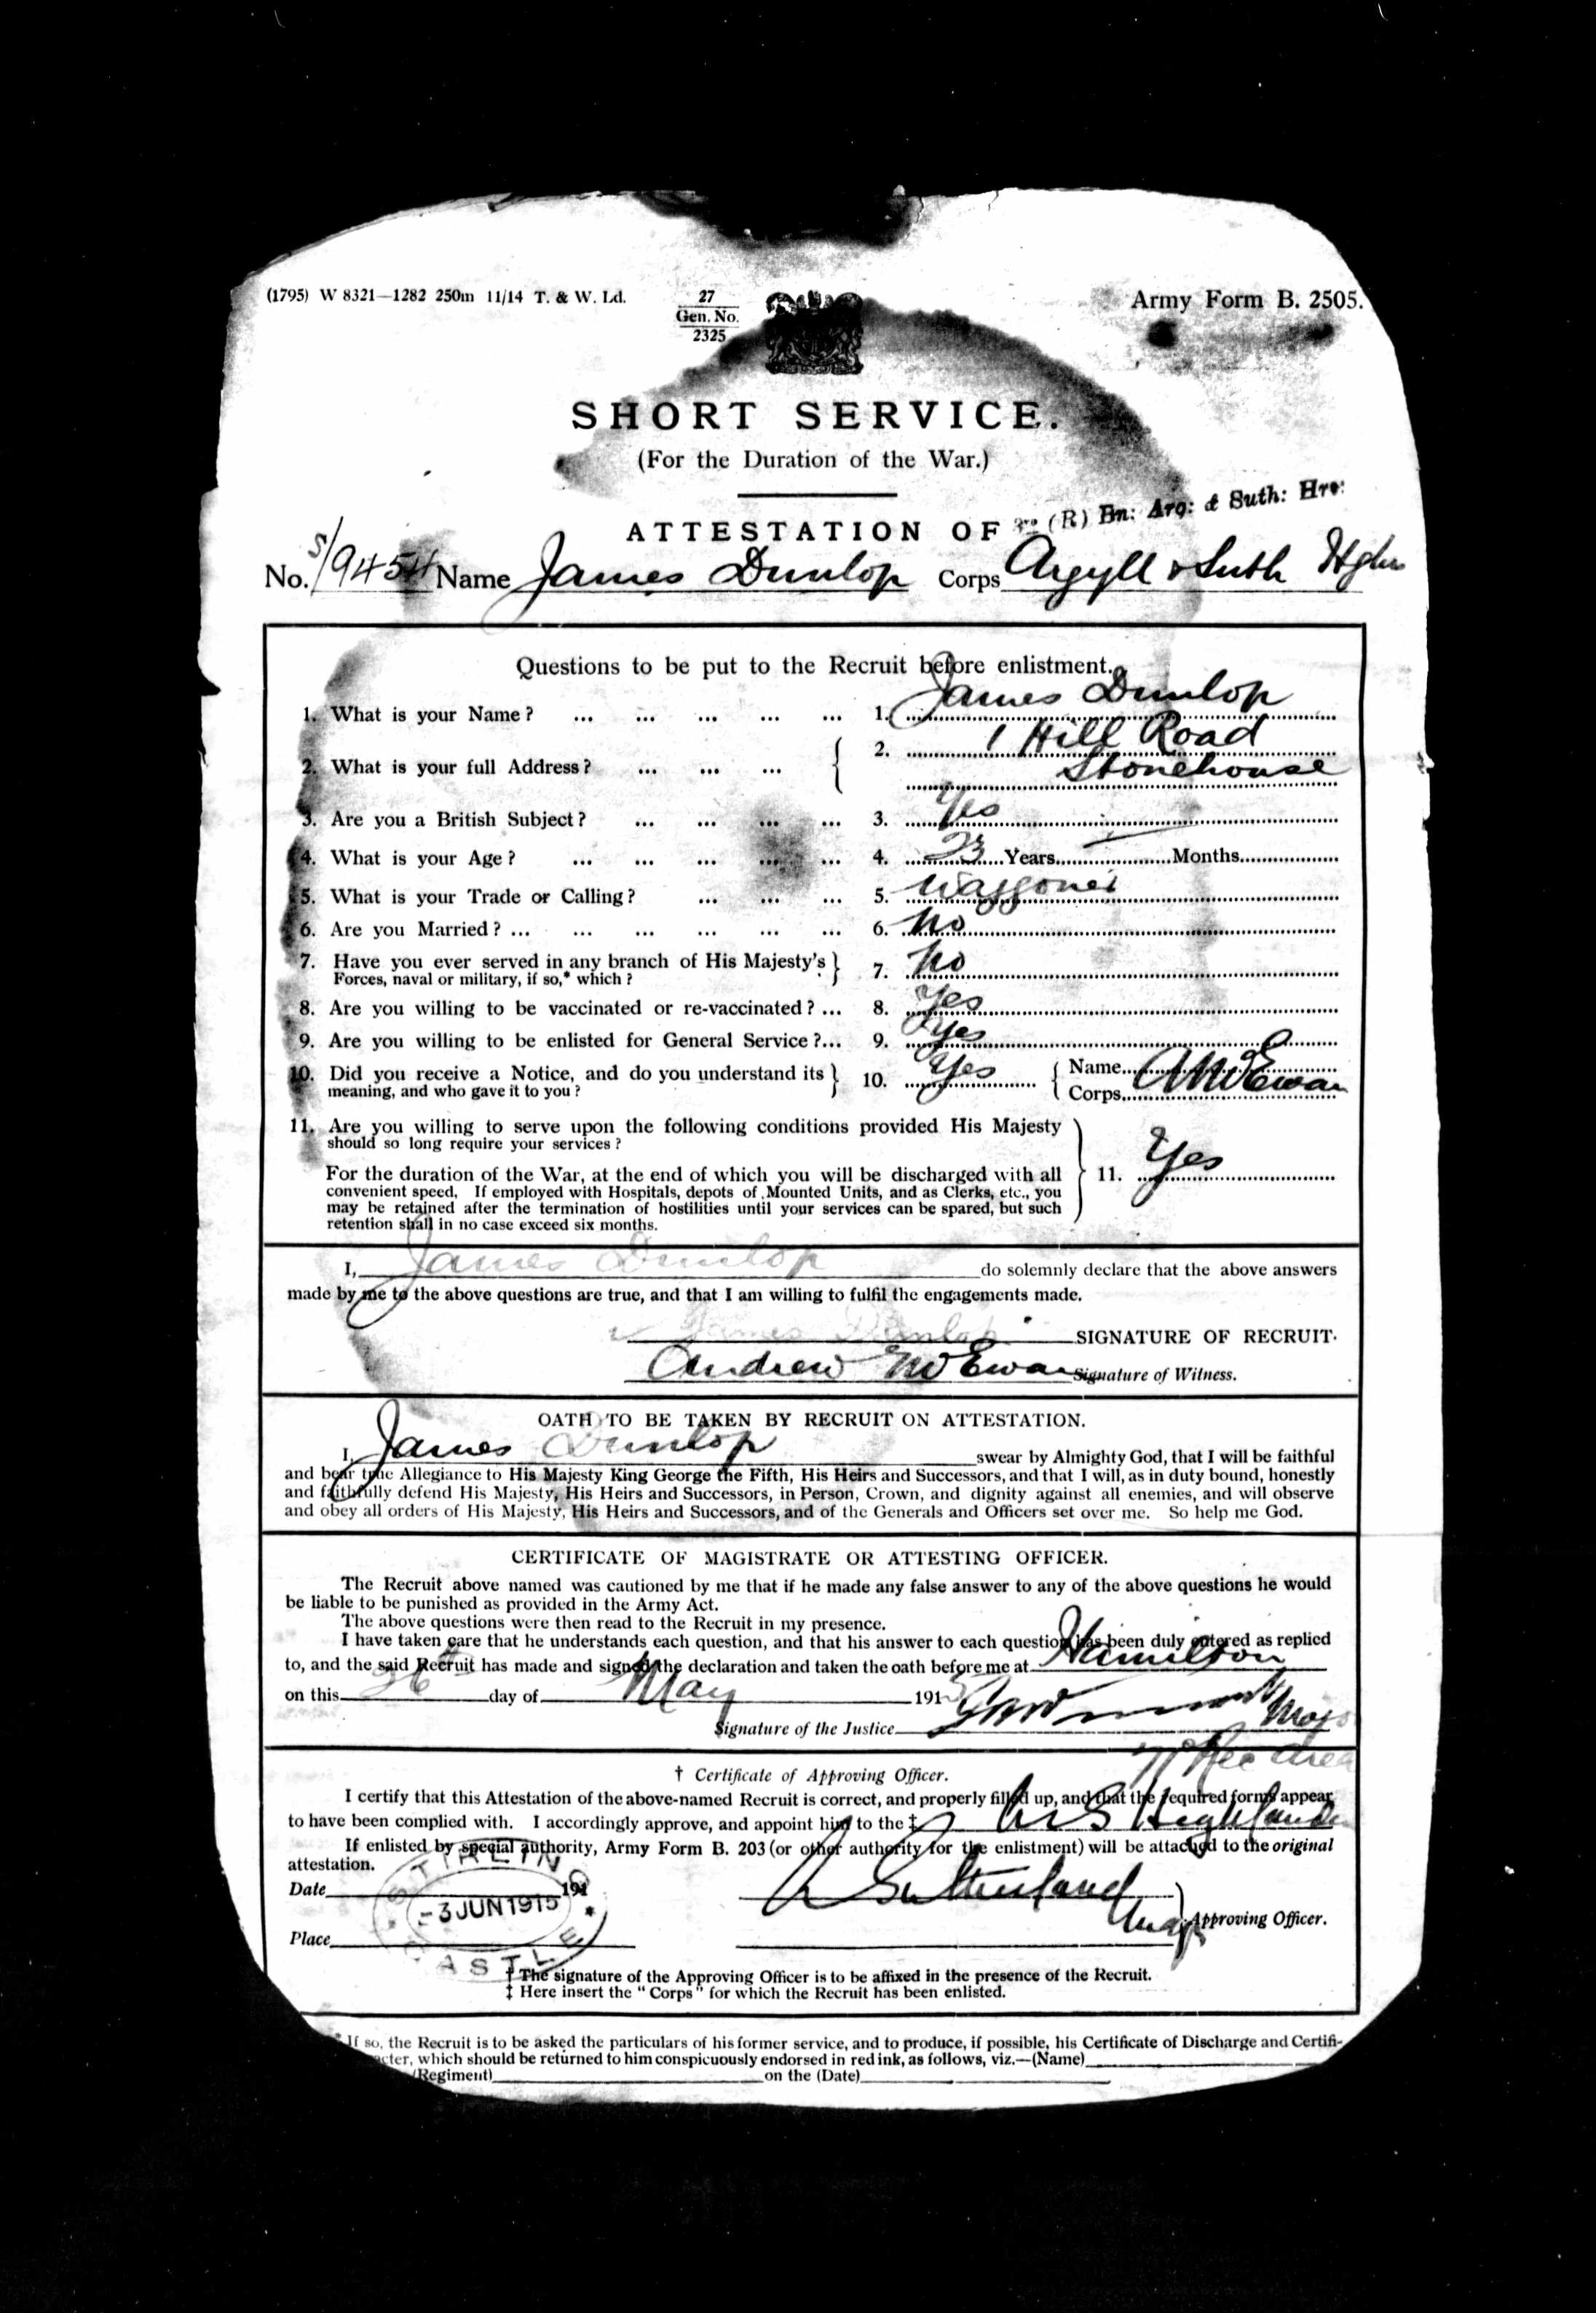 (1795) W 8321—1282 250m 11/14 T. & W. Ld.
27
Gen. No.
2325
Army Form B. 2505.
SHORT SERVICE.
(For the Duration of the War.)
(R) Bn: Arg: & Suth: Hrs:
ATTESTATION OF
No. S/9454 Name James Dunlop Corps Argyll & Suth Hghrs
Questions to be put to the Recruit before enlistment.
1. What is your Name? ... ... ... ... ... 1. James Dunlop
2. What is your full Address? ... ... ... 2. 1 Hill Road
Stonehouse
3. Are you a British Subject? ... ... ... ... 3. Yes
4. What is your Age? ... ... ... ... ... 4. 23 Years — Months
5. What is your Trade or Calling? ... ... ... 5. Waggoner
6. Are you Married? ... ... ... ... ... ... 6. No
7. Have you ever served in any branch of His Majesty's
Forces, naval or military, if so,* which? 7. No
8. Are you willing to be vaccinated or re-vaccinated? ... 8. Yes
9. Are you willing to be enlisted for General Service?... 9. Yes
10. Did you receive a Notice, and do you understand its
meaning, and who gave it to you? 10. Yes Name A McEwan
Corps
11. Are you willing to serve upon the following conditions provided His Majesty
should so long require your services?
For the duration of the War, at the end of which you will be discharged with all
convenient speed. If employed with Hospitals, depots of Mounted Units, and as Clerks, etc., you
may be retained after the termination of hostilities until your services can be spared, but such
retention shall in no case exceed six months.
11. Yes
I, James Dunlop do solemnly declare that the above answers
made by me to the above questions are true, and that I am willing to fulfil the engagements made.
James Dunlop SIGNATURE OF RECRUIT.
Andrew McEwan Signature of Witness.
OATH TO BE TAKEN BY RECRUIT ON ATTESTATION.
I, James Dunlop swear by Almighty God, that I will be faithful
and bear true Allegiance to His Majesty King George the Fifth, His Heirs and Successors, and that I will, as in duty bound, honestly
and faithfully defend His Majesty, His Heirs and Successors, in Person, Crown, and dignity against all enemies, and will observe
and obey all orders of His Majesty, His Heirs and Successors, and of the Generals and Officers set over me. So help me God.
CERTIFICATE OF MAGISTRATE OR ATTESTING OFFICER.
The Recruit above named was cautioned by me that if he made any false answer to any of the above questions he would
be liable to be punished as provided in the Army Act.
The above questions were then read to the Recruit in my presence.
I have taken care that he understands each question, and that his answer to each question has been duly entered as replied
to, and the said Recruit has made and signed the declaration and taken the oath before me at Hamilton
on this 26th day of May 1915
Signature of the Justice Major
Rec Area
† Certificate of Approving Officer.
I certify that this Attestation of the above-named Recruit is correct, and properly filled up, and that the required forms appear
to have been complied with. I accordingly approve, and appoint him to the ‡ A & S Highlanders
If enlisted by special authority, Army Form B. 203 (or other authority for the enlistment) will be attached to the original
attestation.
Date 191
STIRLING
-3 JUN 1915
CASTLE
Sutherland
Major Approving Officer.
Place
† The signature of the Approving Officer is to be affixed in the presence of the Recruit.
‡ Here insert the "Corps" for which the Recruit has been enlisted.
* If so, the Recruit is to be asked the particulars of his former service, and to produce, if possible, his Certificate of Discharge and Certifi-
acter, which should be returned to him conspicuously endorsed in red ink, as follows, viz.—(Name)
(Regiment) on the (Date)